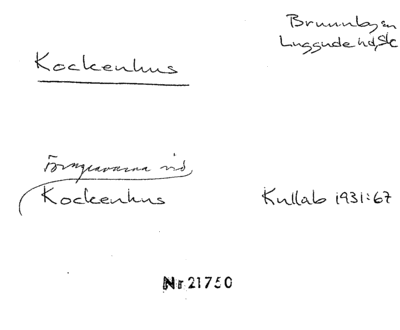 Brunnby sn
Luggude hd, Sk
Kockenhus
Borggravarna vid
Kockenhus
Kullab 1931:67
Nr 21750